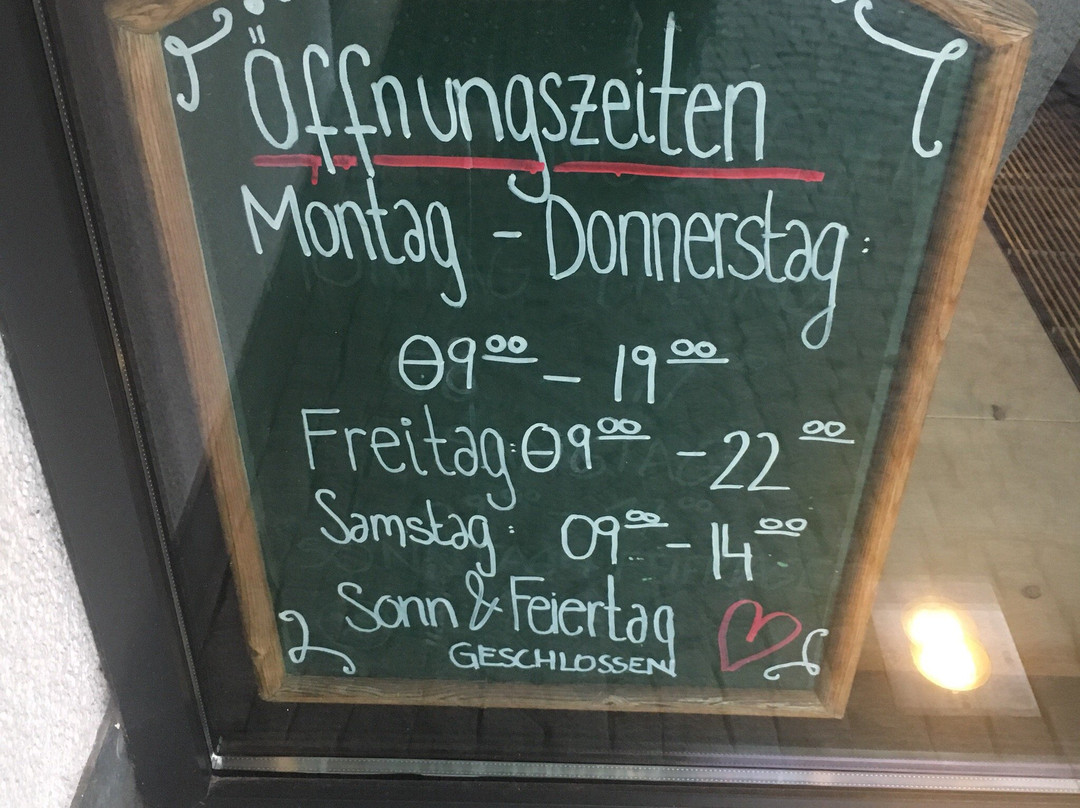 Öffnungszeiten
Montag - Donnerstag:
09 00 - 19 00
Freitag: 09 00 - 22 00
Samstag: 09 00 - 14 00
Sonn & Feiertag
GESCHLOSSEN